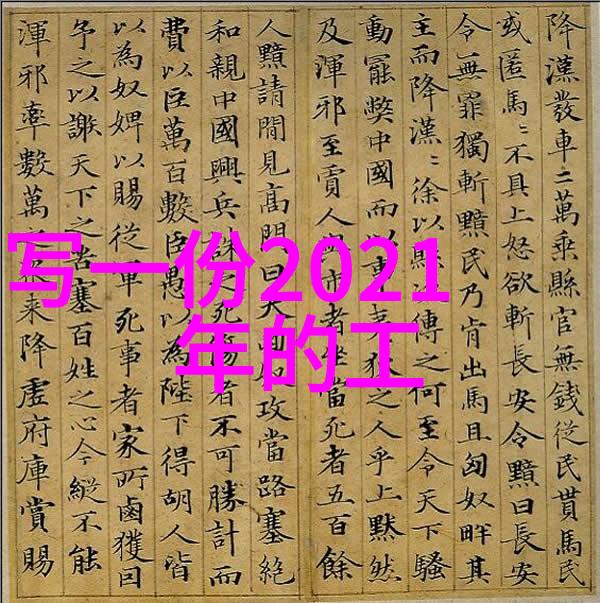 写一份2021
年的工
降漢發車二萬乗縣官無錢從民貰馬民
或匿馬二不具上怒欲斬長安令黯曰長安
令無罪獨斬黯民乃肯出馬且匈奴畔其
主而降漢二徐以縣傳之何至令天下騷
動罷弊中國而以事夷狄之人乎上黙然
及渾邪至賈人市者坐當死者五百餘
人黯請間見高門曰攻當路塞絶
和親中國興兵誅死傷者不可勝計而
費以巨萬百數臣愚以為陛下得胡人皆
以為奴婢以賜從軍死事者家所鹵獲因
予之以謝天下之苦塞百姓之心今縱不能
渾邪率數萬來降虛府庫賞賜